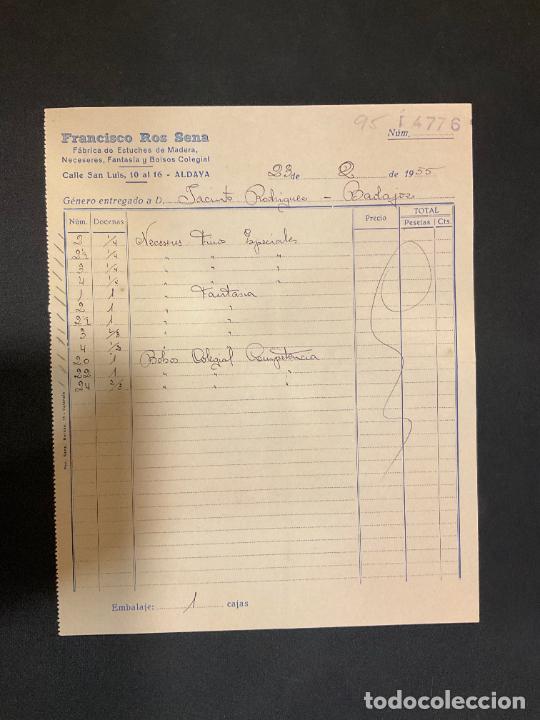 95 1 4776
Francisco Ros Sena
Núm.
Fábrica de Estuches de Madera,
Neceseres, Fantasía y Bolsos Colegial
Calle San Luis, 10 al 16 - ALDAYA
23 de 2 de 1955
Género entregado a D. Jacinto Rodriguez - Badajoz
Núm. Docenas Precio TOTAL
Pesetas Cts.
1/4 Neceseres Finos Especiales
1/4 " " "
1/4 " " "
1/4 " " "
1 Fantasia
1 "
1 "
"
"
1 Bolsos Colegial Competencia
1 " " "
" " "
Embalaje: 1 cajas
todocoleccion.net